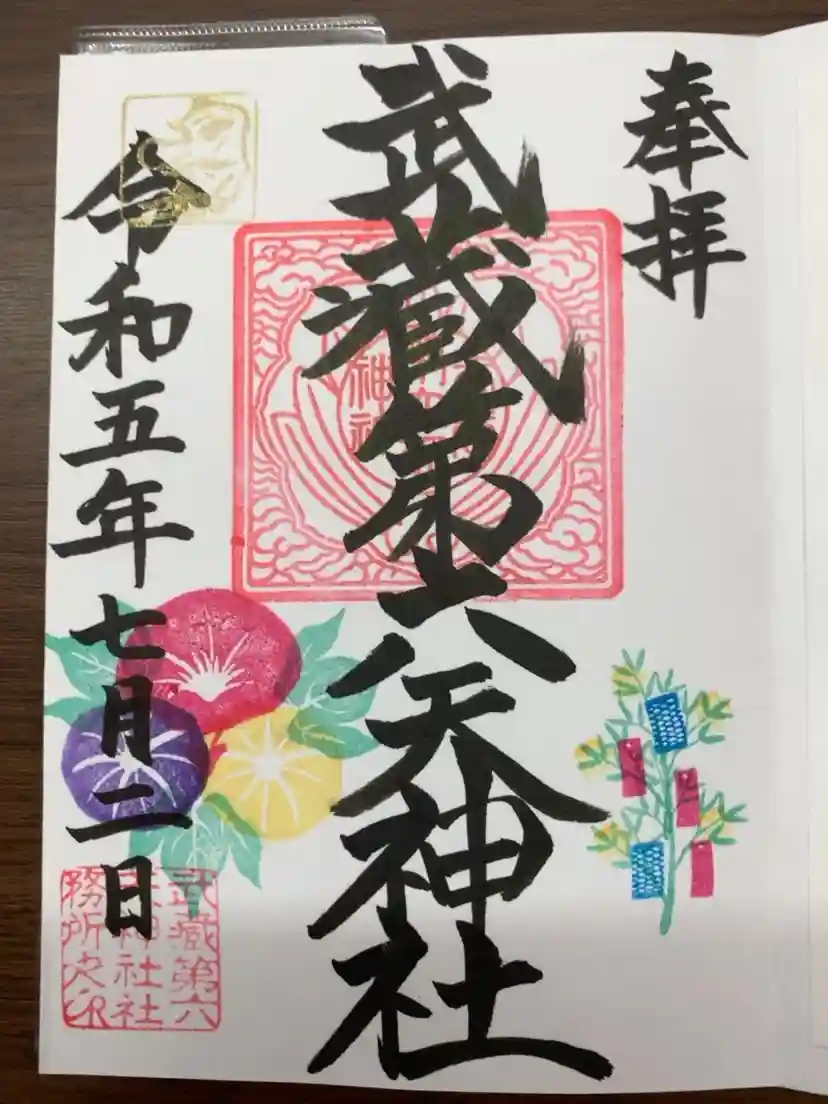 奉拝
武蔵第六天神社
令和五年七月二日
神社
武蔵第六
天神社社
務所之印